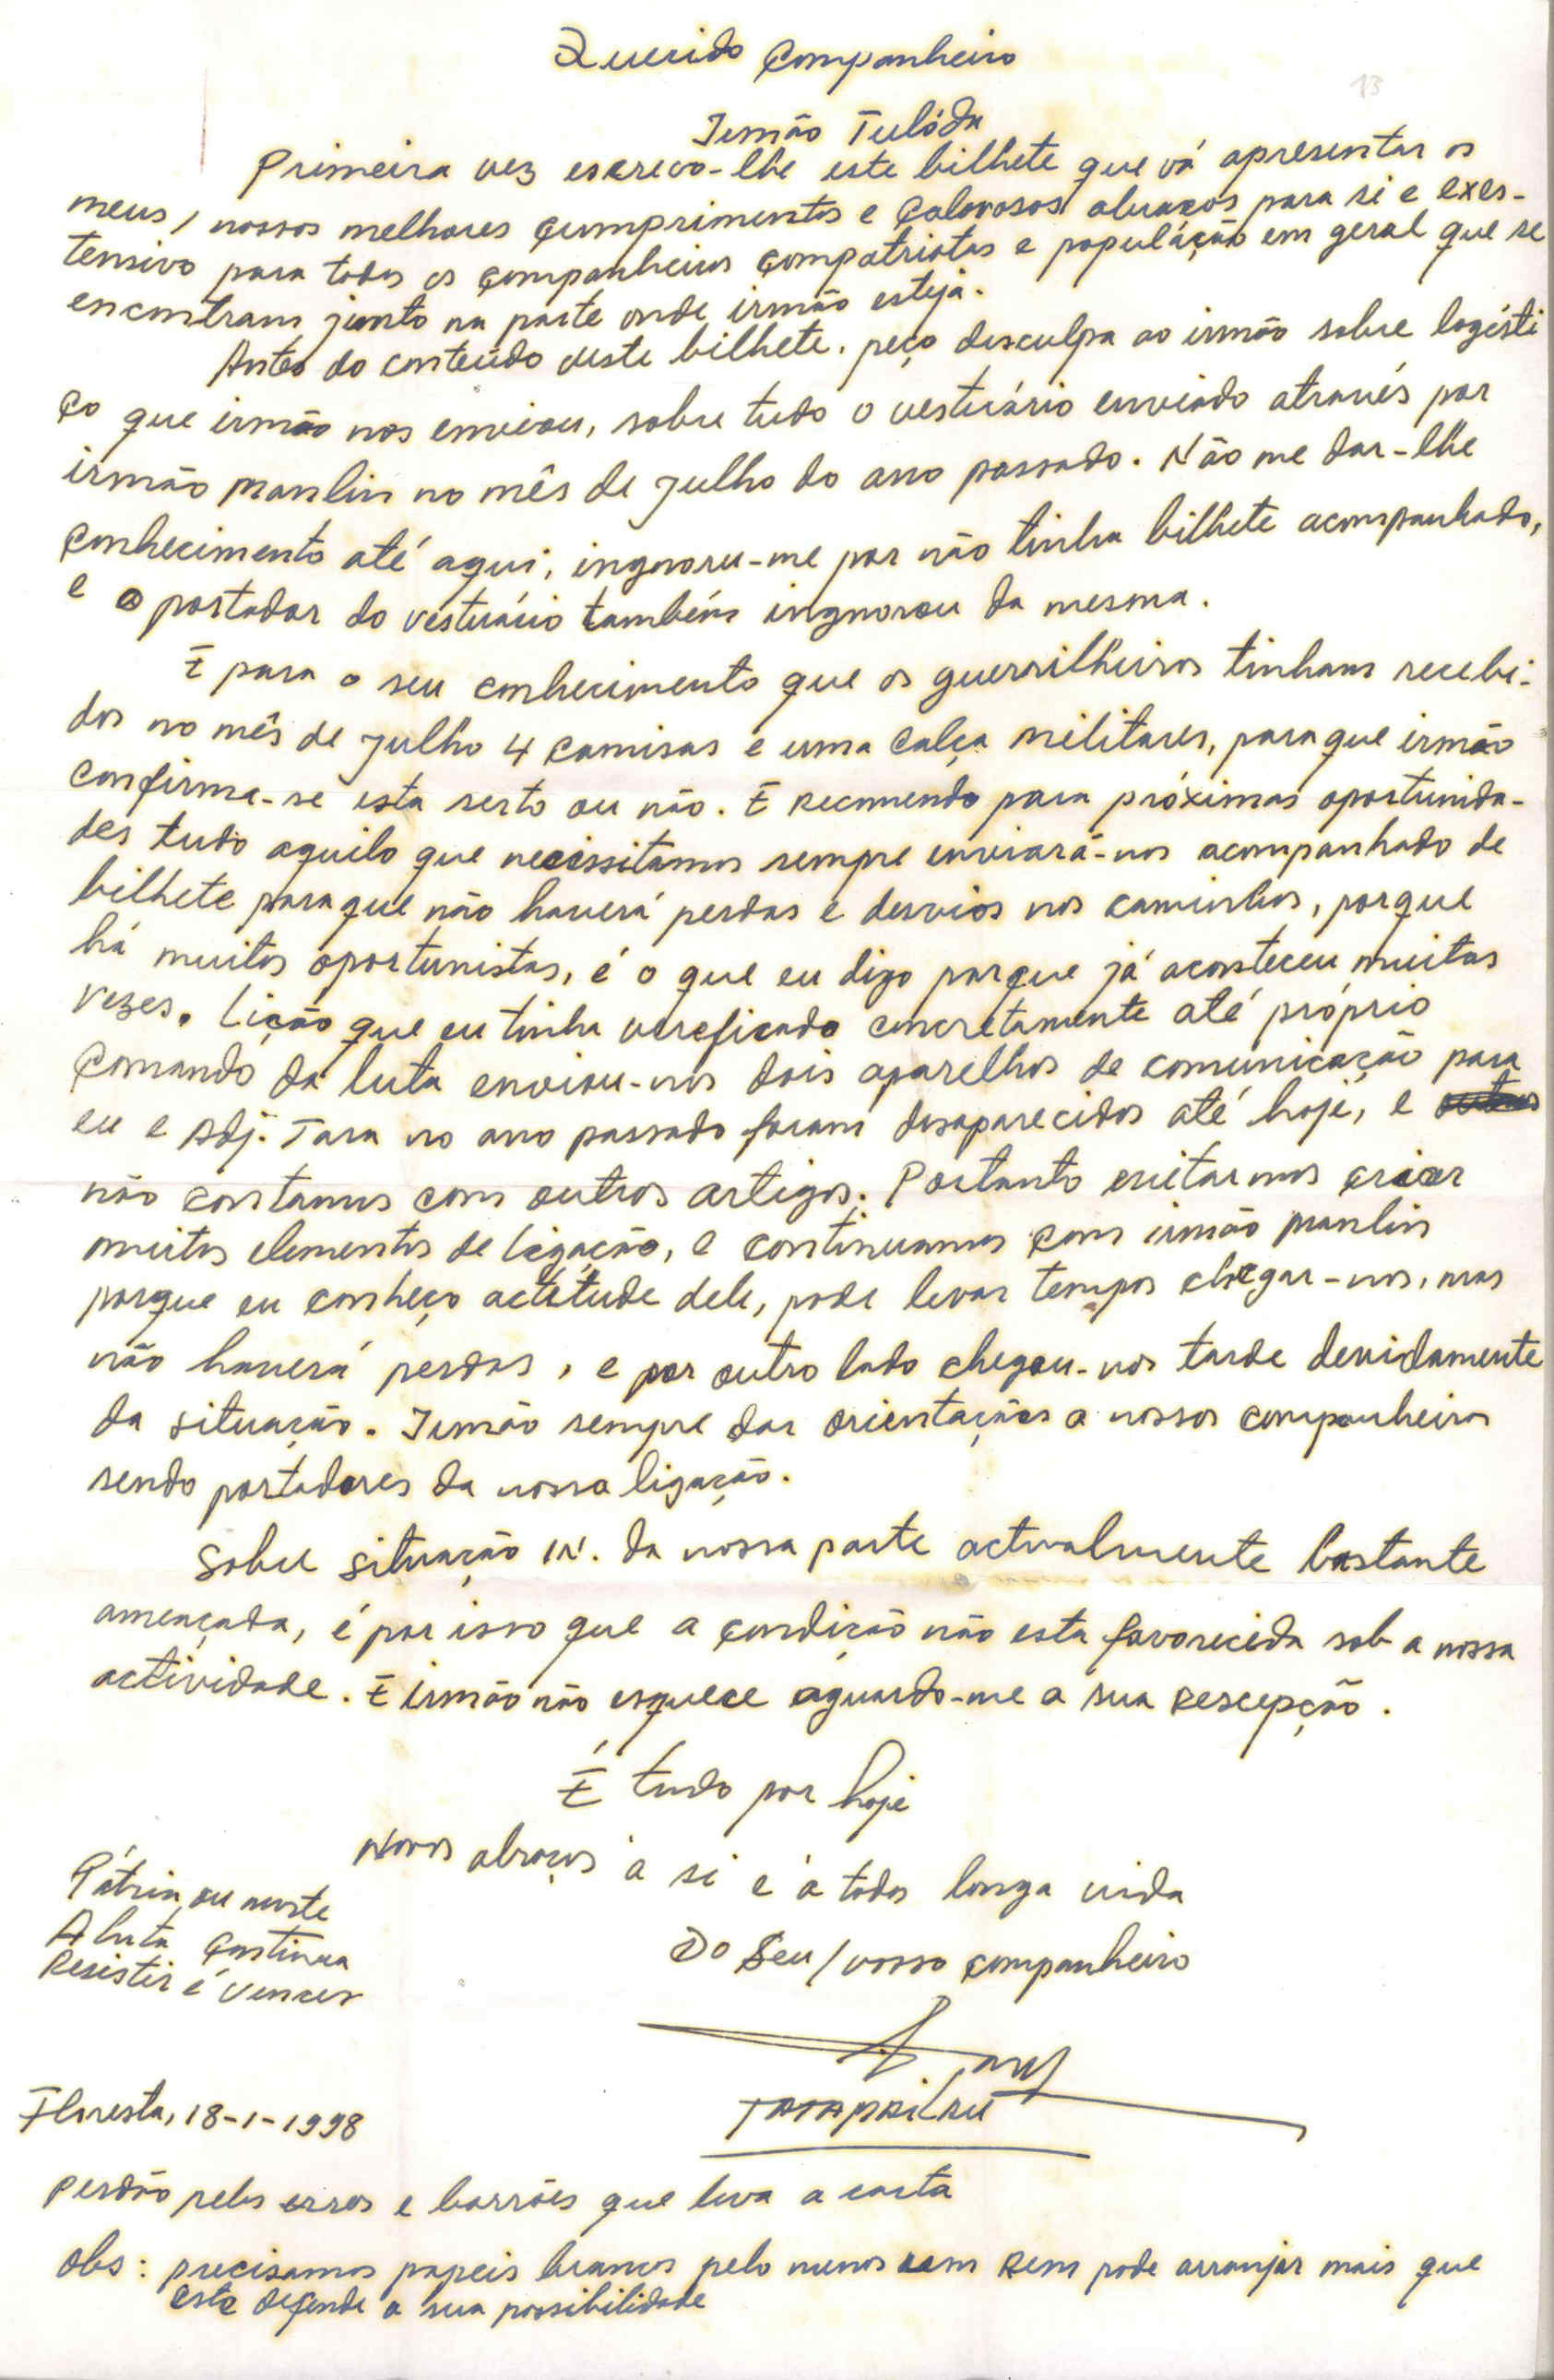 13
Querido Companheiro
Irmão Tulódu
Primeira vez escrevo-lhe este bilhete que vá apresentar os
meus / nossos melhores cumprimentos e calorosos abraços para si e exes-
tensivo para todos os companheiros compatriotas e população em geral que se
encontram junto na parte onde irmão esteja.
Antes do conteúdo deste bilhete, peço desculpa ao irmão sobre logísti
co que irmão nos enviou, sobre tudo o vestuário enviado através por
irmão Manlin no mês de Julho do ano passado. Não me dar-lhe
conhecimento até aqui, ingnoru-me por não tinha bilhete acompanhado,
e o portador do vestuário também ingnorou da mesma.
E para o seu conhecimento que os guerrilheiros tinham recebi-
dos no mês de Julho 4 camisas e uma calça militares, para que irmão
confirma-se esta serto ou não. E recomendo para próximas oportunida-
des tudo aquilo que necissitamos sempre enviará-nos acompanhado de
bilhete para que não haverá perdas e desvios nos caminhos, porque
há muitos oportunistas, é o que eu digo porque já aconteceu muitas
vezes. Lição que eu tinha verificado concretamente até próprio
Comando da luta enviou-nos dois aparelhos de comunicação para
eu e Adj. Tara no ano passado foram desaparecidos até hoje, e
não contamos com outros artigos. Portanto evitarmos criar
muitos elementos de ligação, e continuamos com irmão Manlin
porque eu conheço actitude dele, pode levar tempos chegar-nos, mas
não haverá perdas, e por outro lado chegou-nos tarde devidamente
da situação. Irmão sempre dar orientações a nossos companheiros
sendo portadores da nossa ligação.
Sobre situação IN. da nossa parte actualmente bastante
ameaçada, é por isso que a condição não esta favorecida sob a nossa
actividade. E irmão não esquece aguardo-me a sua rescepção.
É tudo por hoje
Novos abraços a si e a todos longa vida
Pátria ou morte
A luta continua
Resistir é vencer
Do Seu / vosso companheiro
Floresta, 18-1-1998
Perdão pelos erros e borrões que leva a carta
Obs: precisamos papeis brancos pelo menos cem rem pode arranjar mais que
este defende a sua possibilidade